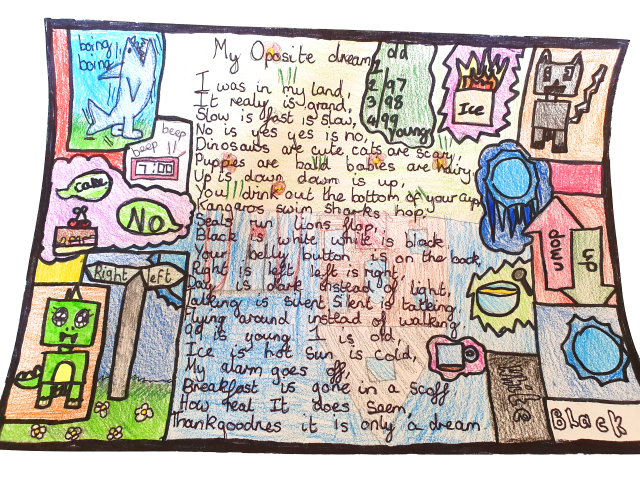 My Oposite dream
I was in my land,
It realy is grand,
Slow is fast is slow,
No is yes yes is no,
Dinosaurs are cute cats are scary,
Puppies are bald babies are hairy
Up is down down is up,
You drink out the bottom of your cup,
Kangaros swim sharks hop,
Seals run lions flop,
Black is white white is black
Your belly button is on the back,
Right is left left is right,
Day is dark instead of light,
Talking is silent Silent is talking,
Flying around instead of walking,
99 is young 1 is old,
Ice is hot sun is cold,
My alarm goes off,
Breakfast is gone in a scoff
How real It does Seem,
Thankgoodnes it is only a dream
boing
boing
beep
beep
7:00
Cake
No
Right
left
old
2 97
3 98
4 99
young
Ice
down
up
White
Black